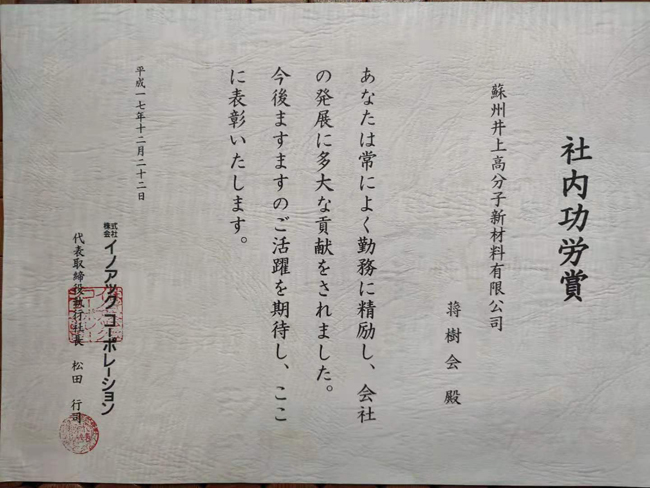 社内功労賞
蘇州井上高分子新材料有限公司
蒋樹会 殿
あなたは常によく勤務に精励し、会社
の発展に多大な貢献をされました。
今後ますますのご活躍を期待し、ここ
に表彰いたします。
平成一七年十二月二十二日
株式会社 イノアック コーポレーション
代表取締役執行社長 松田 行司